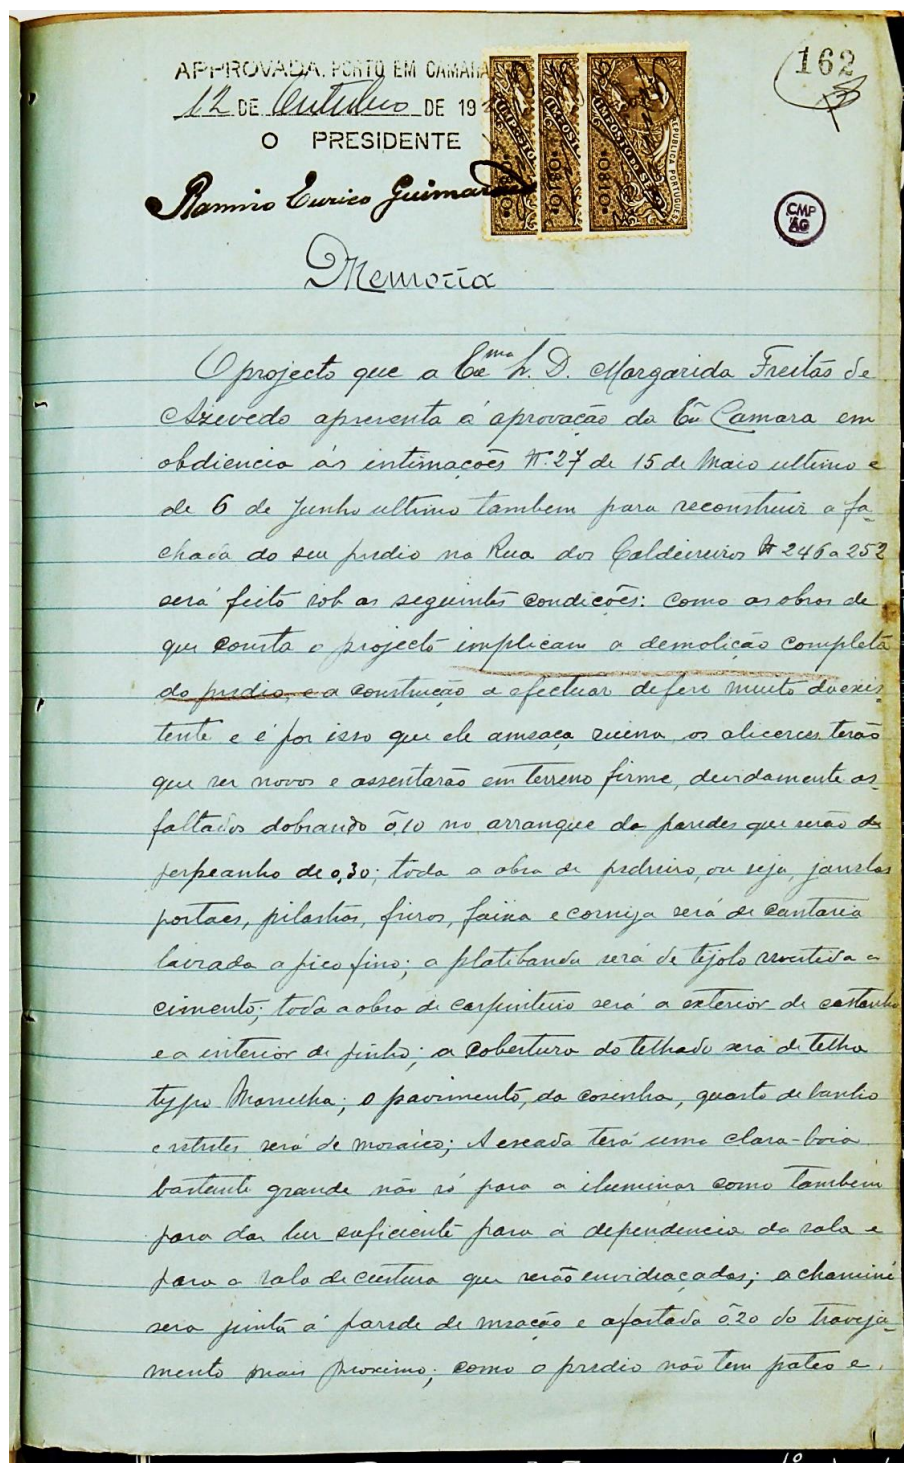 162
APPROVADA. PORTO EM CAMARA
12 DE Outubro DE 19
O PRESIDENTE
Ramiro Eurico Guimarães
IMPOSTO DO SELO
REPUBLICA PORTUGUESA
CMP
AG
Memoria
O projecto que a Exma Sr. D. Margarida Freitas de
Azevedo apresenta á aprovação da Exa Camara em
obdiencia ás intimações Nº 27 de 15 de Maio ultimo e
de 6 de Junho ultimo tambem para reconstruir a fa-
chada do seu predio na Rua dos Caldeireiros Nº 246 a 252
será feito sob as seguintes condições: como as obras de
que consta o projecto implicam a demolição completa
do predio, e a construção a efectuar defere muito do exis-
tente e é por isso que ele ameaça ruina, os alicerces terão
que ser novos e assentarão em terreno firme, devidamente as-
faltados dobrando 0,10 no arranque da paredes que serão de
perpeanho de 0,30; toda a obra de pedreiro, ou seja, janelas
portaes, pilastras, frisos, faixa e cornija será de cantaria
lavrada a pico fino; a platibanda será de tijolo revestida a
cimento; toda a obra de carpinteiro será a exterior de castanho
e a interior de pinho; a cobertura do telhado sera de telha
typo Marselha; o pavimento, da cosinha, quarto de banho
e retretes será de mosaico; A escada terá uma clara-boia
bastante grande não só para a iluminar como tambem
para dar luz suficiente para a dependencia da sala e
para a sala de custura que serão envidraçadas; a chaminé
sera junta á parede de meação e afastada 0,20 do traveja-
mento mais proximo; como o predio não tem pateo e